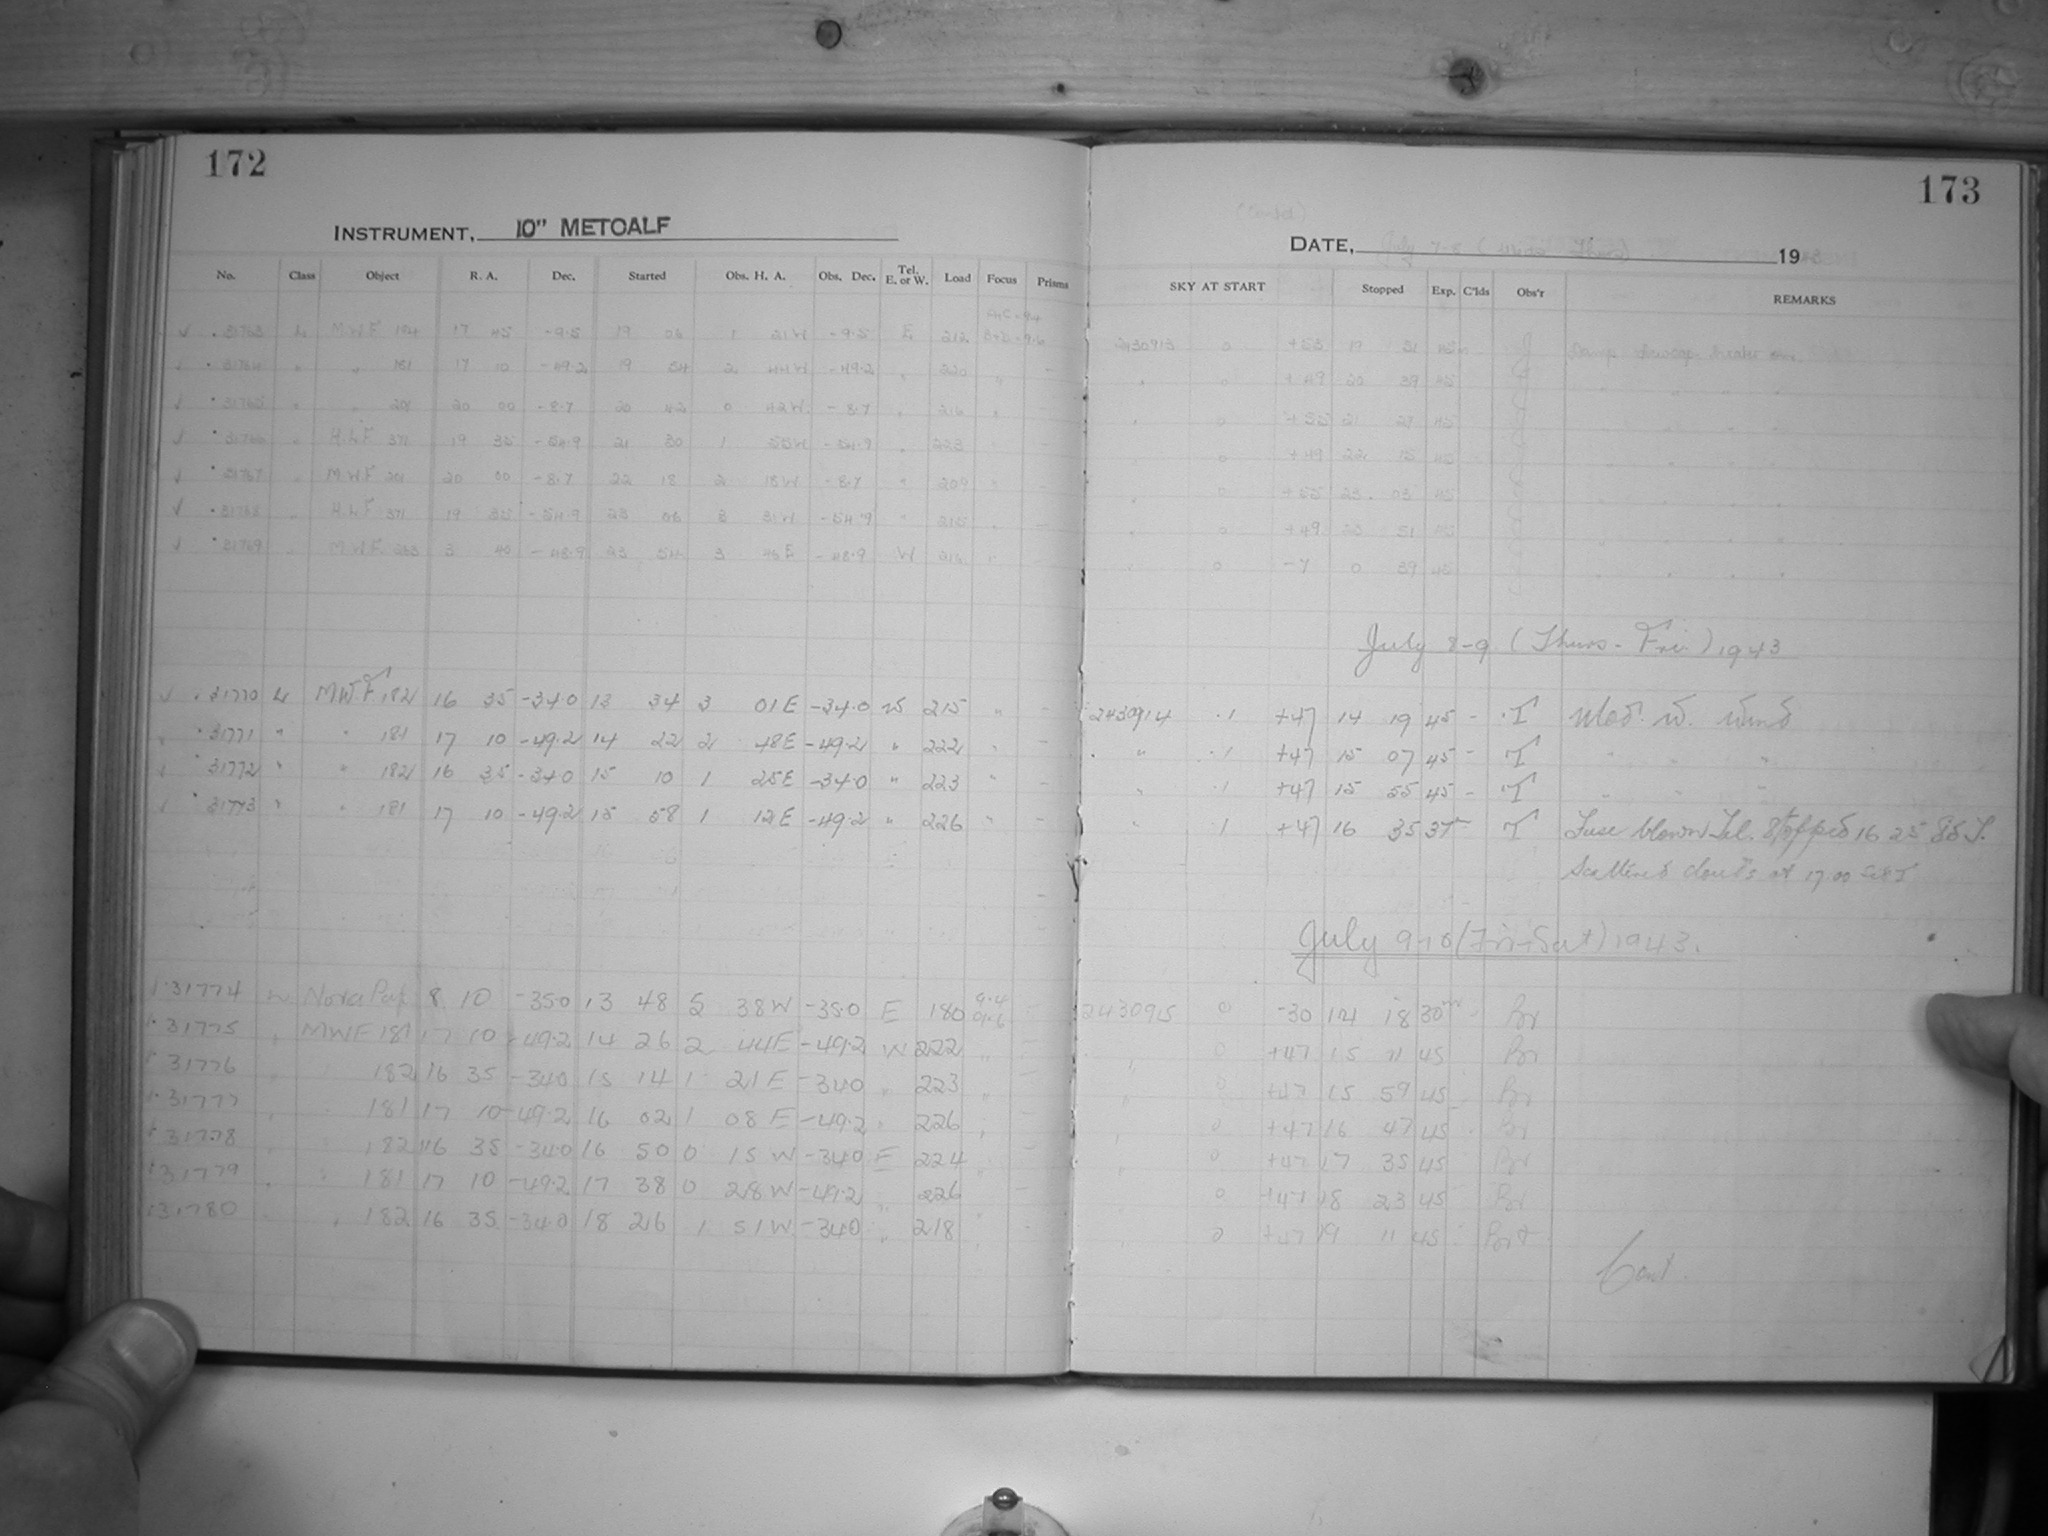 172
INSTRUMENT, 10" METCALF
No. Class Object R. A. Dec. Started Obs. H. A. Obs. Dec. Tel. E. or W. Load Focus Prisms
31763 M.W.F 17 45 -9.5 19 06 1 21W -9.5 E 212
31764 " " 181 17 10 -49.2 19 54 2 44W -49.2 " 220 "
31765 " " 201 20 00 -8.7 20 42 0 42W -8.7 " 216 "
31766 " H.L.F 371 19 35 -54.9 21 30 1 55W -54.9 " 223
31767 " M.W.F 201 20 00 -8.7 22 18 2 18W -8.7 " 209 "
31768 " H.L.F 371 19 35 -54.9 23 06 3 31W -54.9 " 215 "
31769 M.W.F. 263 3 40 -48.9 23 54 3 46E -48.9 W 216 "
31770 MWF 182 16 35 -34.0 13 34 3 01E -34.0 W 215 " -
31771 " " 181 17 10 -49.2 14 22 2 48E -49.2 " 222 -
31772 " " 182 16 35 -34.0 15 10 1 25E -34.0 " 223 " -
31773 " " 181 17 10 -49.2 15 58 1 12E -49.2 " 226 " -
31774 Nova Pup 8 10 -35.0 13 48 5 38W -35.0 E 180 9.4 9.6
31775 MWF 181 17 10 -49.2 14 26 2 44E -49.2 W 222
31776 182 16 35 -34.0 15 14 1 21E -34.0 " 223
31777 181 17 10 -49.2 16 02 1 08E -49.2 " 226
31778 182 16 35 -34.0 16 50 0 15W -34.0 E 224
31779 181 17 10 -49.2 17 38 0 28W -49.2 " 226
31780 182 16 35 -34.0 18 26 1 51W -34.0 " 218
173
(Contd)
DATE, July 7-8 (Wed - Thurs) 19
SKY AT START Stopped Exp. C'lds Obs'r REMARKS
2430913 0 +55 19 51 45m J
" 0 +49 20 39 45 J " " " "
" 0 +55 21 27 45 J " " " "
0 +49 22 15 45 J " " " "
" 0 +55 23 03 45 J " " " "
" 0 +49 23 51 45 J " " " "
" 0 -7 0 39 45 J " " " "
July 8-9 (Thurs - Fri.) 1943
2430914 .1 +47 14 19 45 - T Mod. W. Wind
" .1 +47 15 07 45 - T " " "
" .1 +47 15 55 45 - T " " "
" .1 +47 16 35 37 - T Fuse blown Tel. Stopped 16 25 Sd T.
Scattered clouds at 17.00 Sd T
July 9-10 (Fri-Sat) 1943.
2430915 0 -30 14 18 30m Br
" 0 +47 15 11 45 Br
" 0 +47 15 59 45 Br
" 0 +47 16 47 45 Br
" 0 +47 17 35 45 Br
" 0 +47 18 23 45 Br
" 0 +47 19 11 45
Cont.